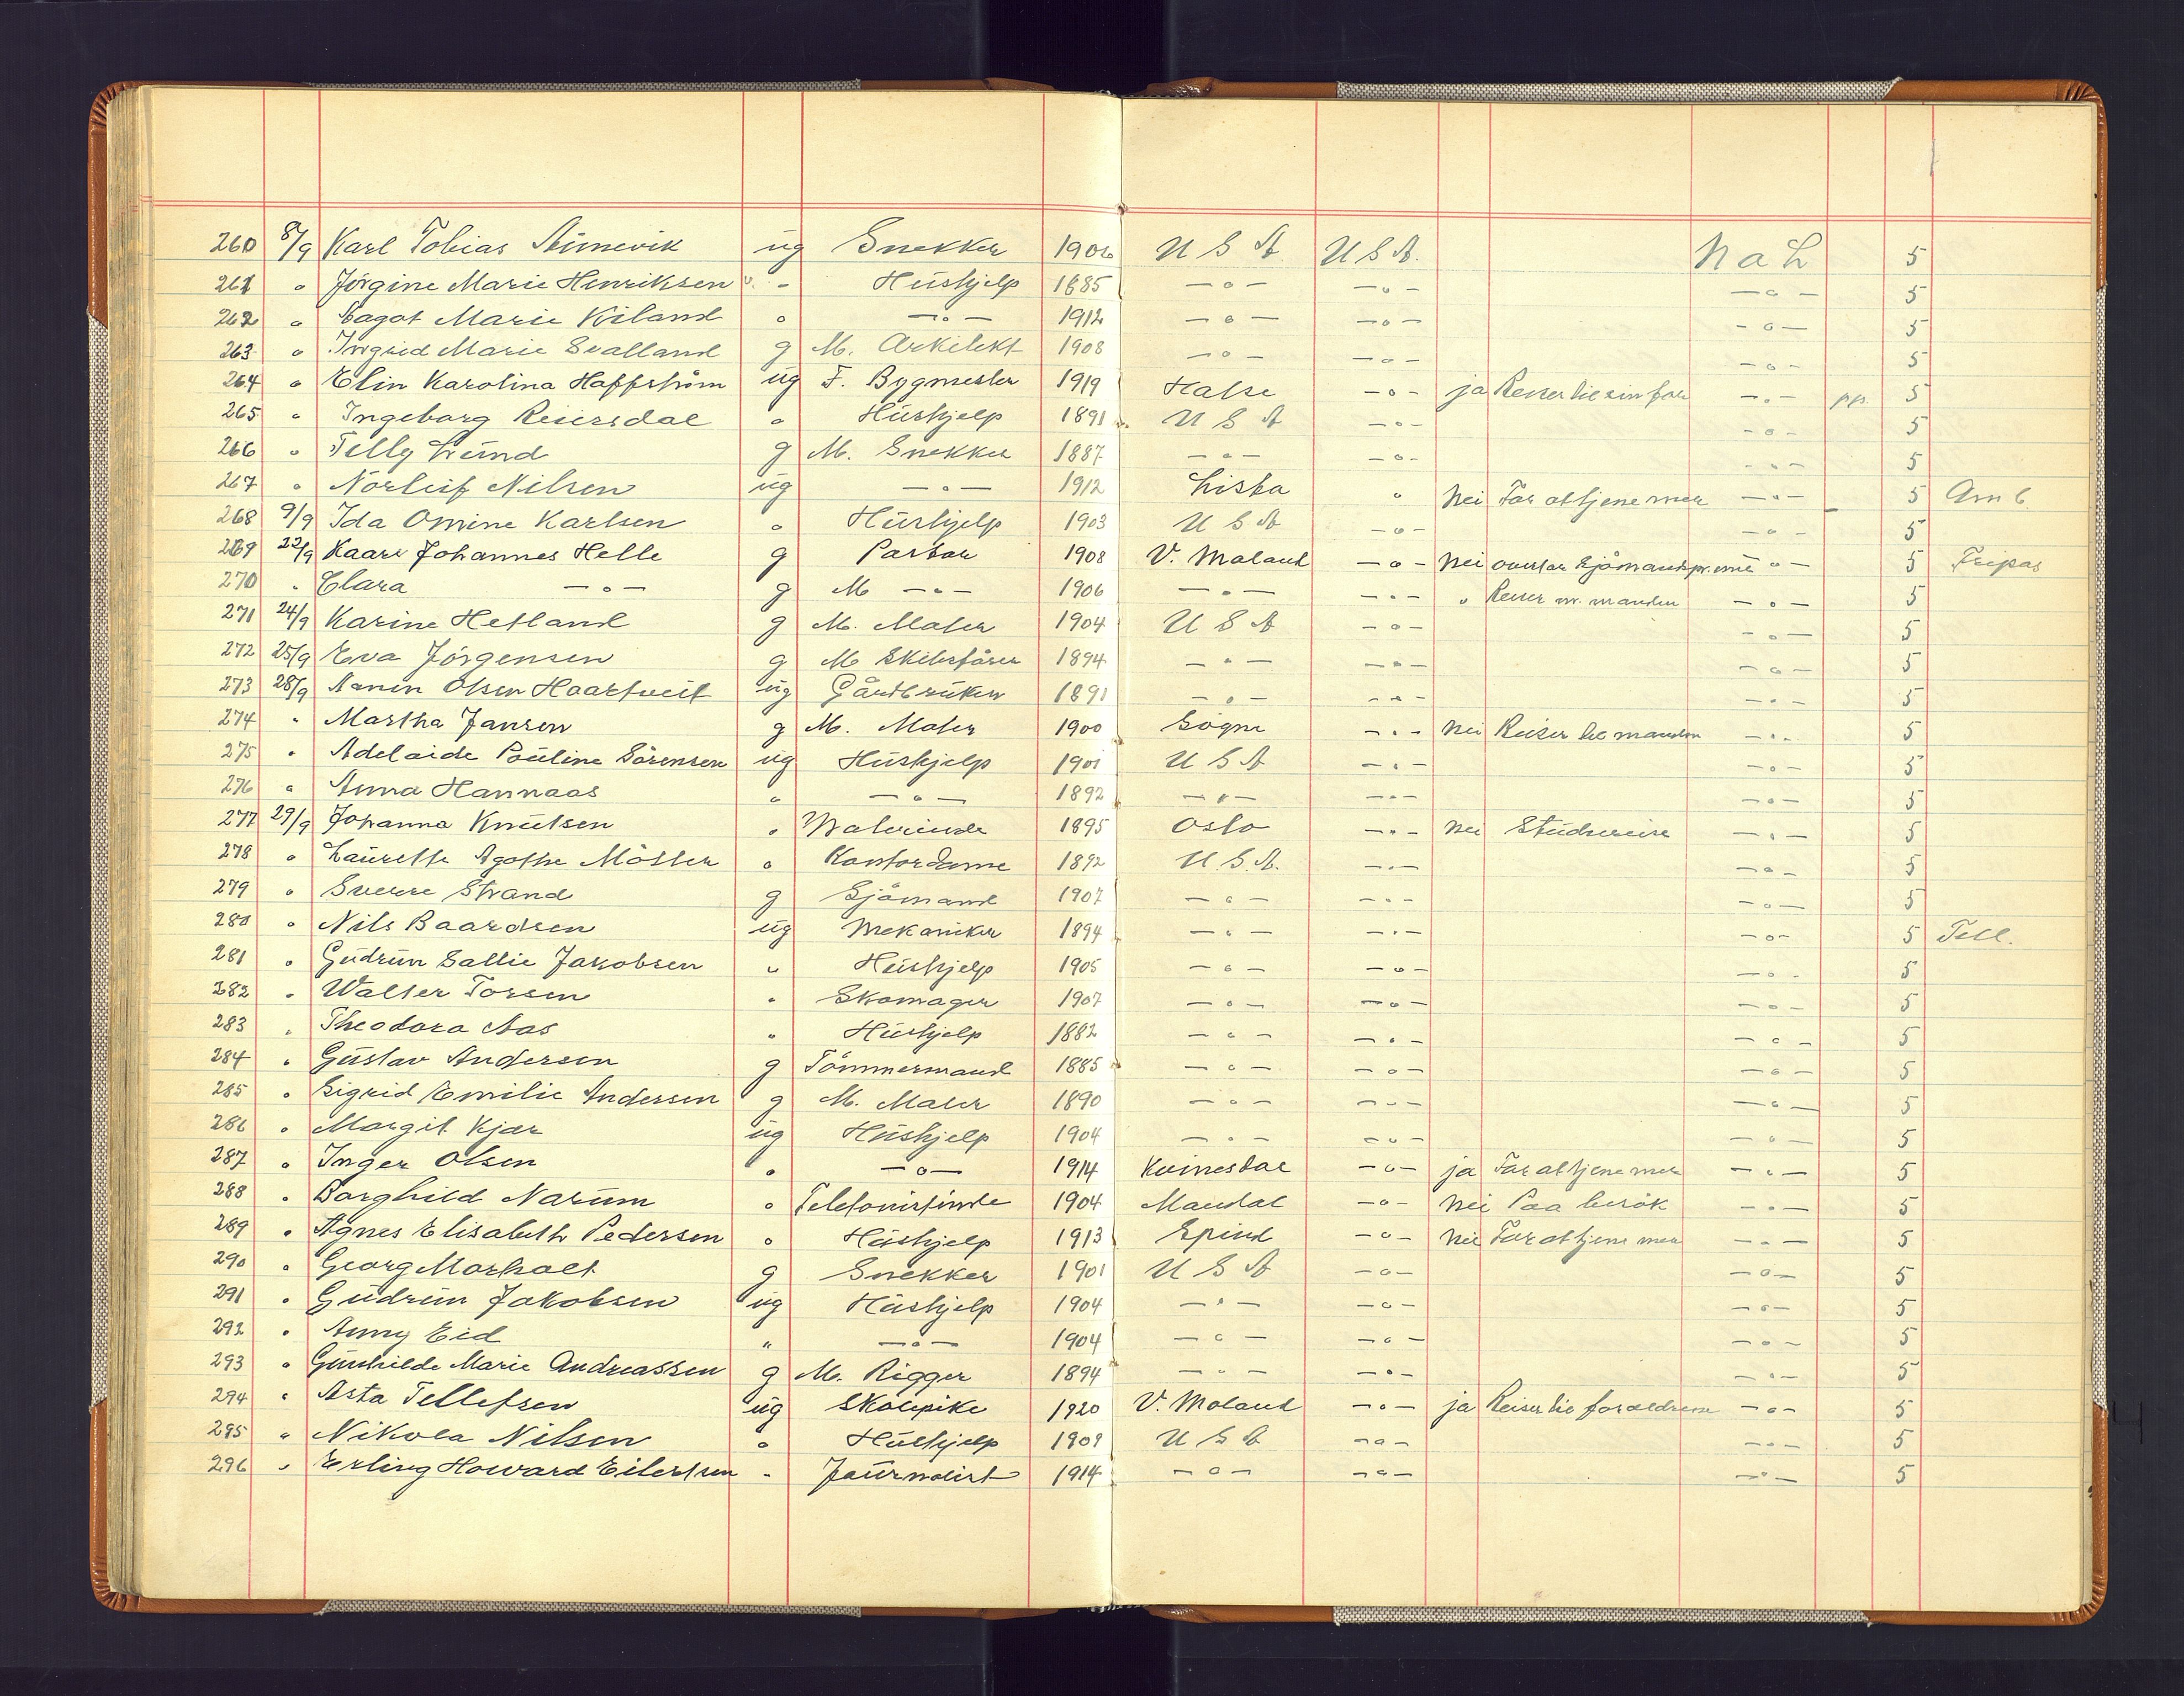 260 8/9 Karl Tobias ug Snekker 1906 U S A U S A. N a L 5
261 " Jörgine Marie Henriksen - Hüshjelp 1885 —o— —o— —o— 5
262 " Dagot Marie Kiland " —o— 1912 —o— —o— —o— 5
263 " Ingrid Marie Svalland g M. Arkitekt 1908 —o— —o— —o— 5
264 " Elin Karolina Haffström ug F. Bygmester 1919 Halse —o— ja Reiser til sin far —o— pp. 5
265 " Ingeborg Reiersdal " Hüshjelp 1891 U S A —o— —o— 5
266 " Telly Lünd g M. Snekker 1887 —o— —o— —o— 5
267 " Norleif Nilsen ug —o— 1912 Lista " Nei For at tjene mer —o— 5 Am b
268 9/9 Ida Omine Karlsen " Hüshjelp 1903 U S A —o— —o— 5
269 22/9 Kaare Johannes Helle g Pastor 1908 V. Moland —o— Nei overtar Sjömandspr. —o— 5 Fripas
270 " Clara —o— g M —o— 1906 —o— —o— " Reiser m. manden —o— 5
271 24/9 Karine Hetland g M. Maler 1904 U S A —o— —o— 5
272 25/9 Eva Jörgensen g M Skibsförer 1894 —o— —o— —o— 5
273 28/9 Aanen Olsen Haartveit ug Gårdbrüker 1891 —o— —o— —o— 5
274 " Martha Jansen g M. Maler 1900 Sögne —o— Nei Reiser til manden —o— 5
275 " Adelaide Pauline Sörensen ug Hüshjelp 1901 U S A —o— —o— 5
276 " Anna Hannaas " —o— 1892 —o— —o— —o— 5
277 29/9 Johanna Knütsen " Malerinde 1895 Oslo —o— Nei Stüdiereise —o— 5
278 " Laurette Agathe Möller " Kontordame 1892 U.S.A. —o— —o— 5
279 " Sverre Strand g Sjömand 1907 —o— —o— —o— 5
280 " Nils Baardsen ug Mekaniker 1894 —o— —o— —o— 5 Tell.
281 " Güdrün Sallie Jakobsen " Hüshjelp 1905 —o— —o— —o— 5
282 " Walter Torsen " Skomager 1907 —o— —o— —o— 5
283 " Theodora Aas " Hüshjelp 1882 —o— —o— —o— 5
284 " Güstav Andersen g Tömmermand 1885 —o— —o— —o— 5
285 " Sigrid Emilie Andersen g M. Maler 1890 —o— —o— —o— 5
286 " Margit Kjær ug Hüshjelp 1904 —o— —o— —o— 5
287 " Inger Olsen " —o— 1914 Kvinesdal —o— ja For at tjene mer —o— 5
288 " Borghild Narüm " Telefonistinde 1904 Mandal —o— Nei Paa besök —o— 5
289 " Agnes Elisabeth Pedersen " Hüshjelp 1913 Spind —o— Nei For at tjene mer —o— 5
290 " Georg Morholt g Snekker 1901 U S A —o— —o— 5
291 " Güdrün Jakobsen ug Hüshjelp 1904 —o— —o— —o— 5
292 " Anny Eid " —o— 1904 —o— —o— —o— 5
293 " Günhilde Marie Andreassen g M. Rigger 1894 —o— —o— —o— 5
294 " Asta Tellefsen ug Skolepike 1920 V. Moland —o— ja Reiser til foreldrene —o— 5
295 " Nikola Nilsen " Hüshjelp 1909 U S A —o— —o— 5
296 " Erling Howard Eilertsen - Jaürnalist 1914 —o— —o— —o— 5